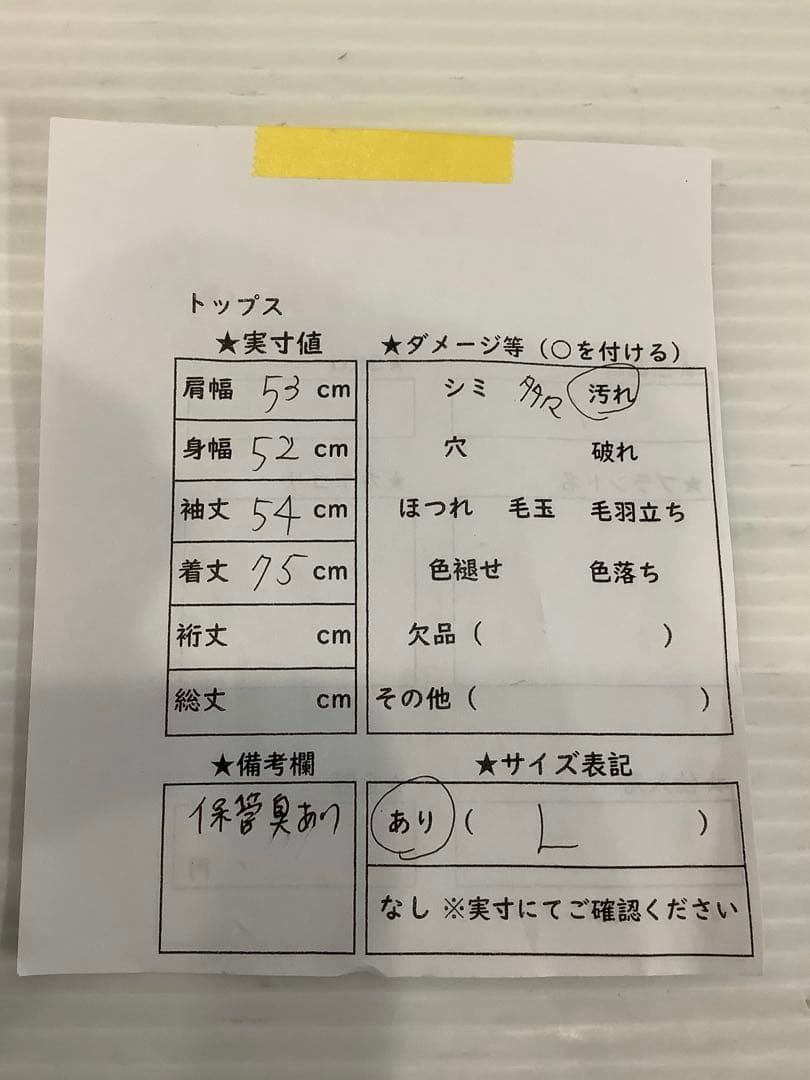 トップス
★実寸値
肩幅 53 cm
身幅 52 cm
袖丈 54 cm
着丈 75 cm
裄丈 cm
総丈 cm
★ダメージ等（○を付ける）
シミ 多々 汚れ
穴 破れ
ほつれ 毛玉 毛羽立ち
色褪せ 色落ち
欠品（ ）
その他（ ）
★備考欄
保管臭あり
★サイズ表記
あり（ L ）
なし ※実寸にてご確認ください